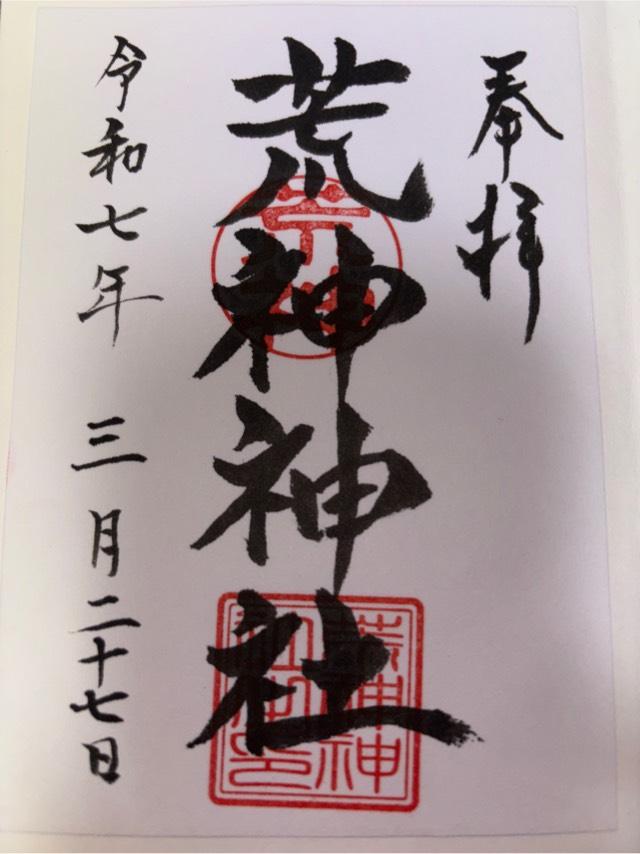 奉拝
荒神神社
令和七年 三月二十七日
荒神神